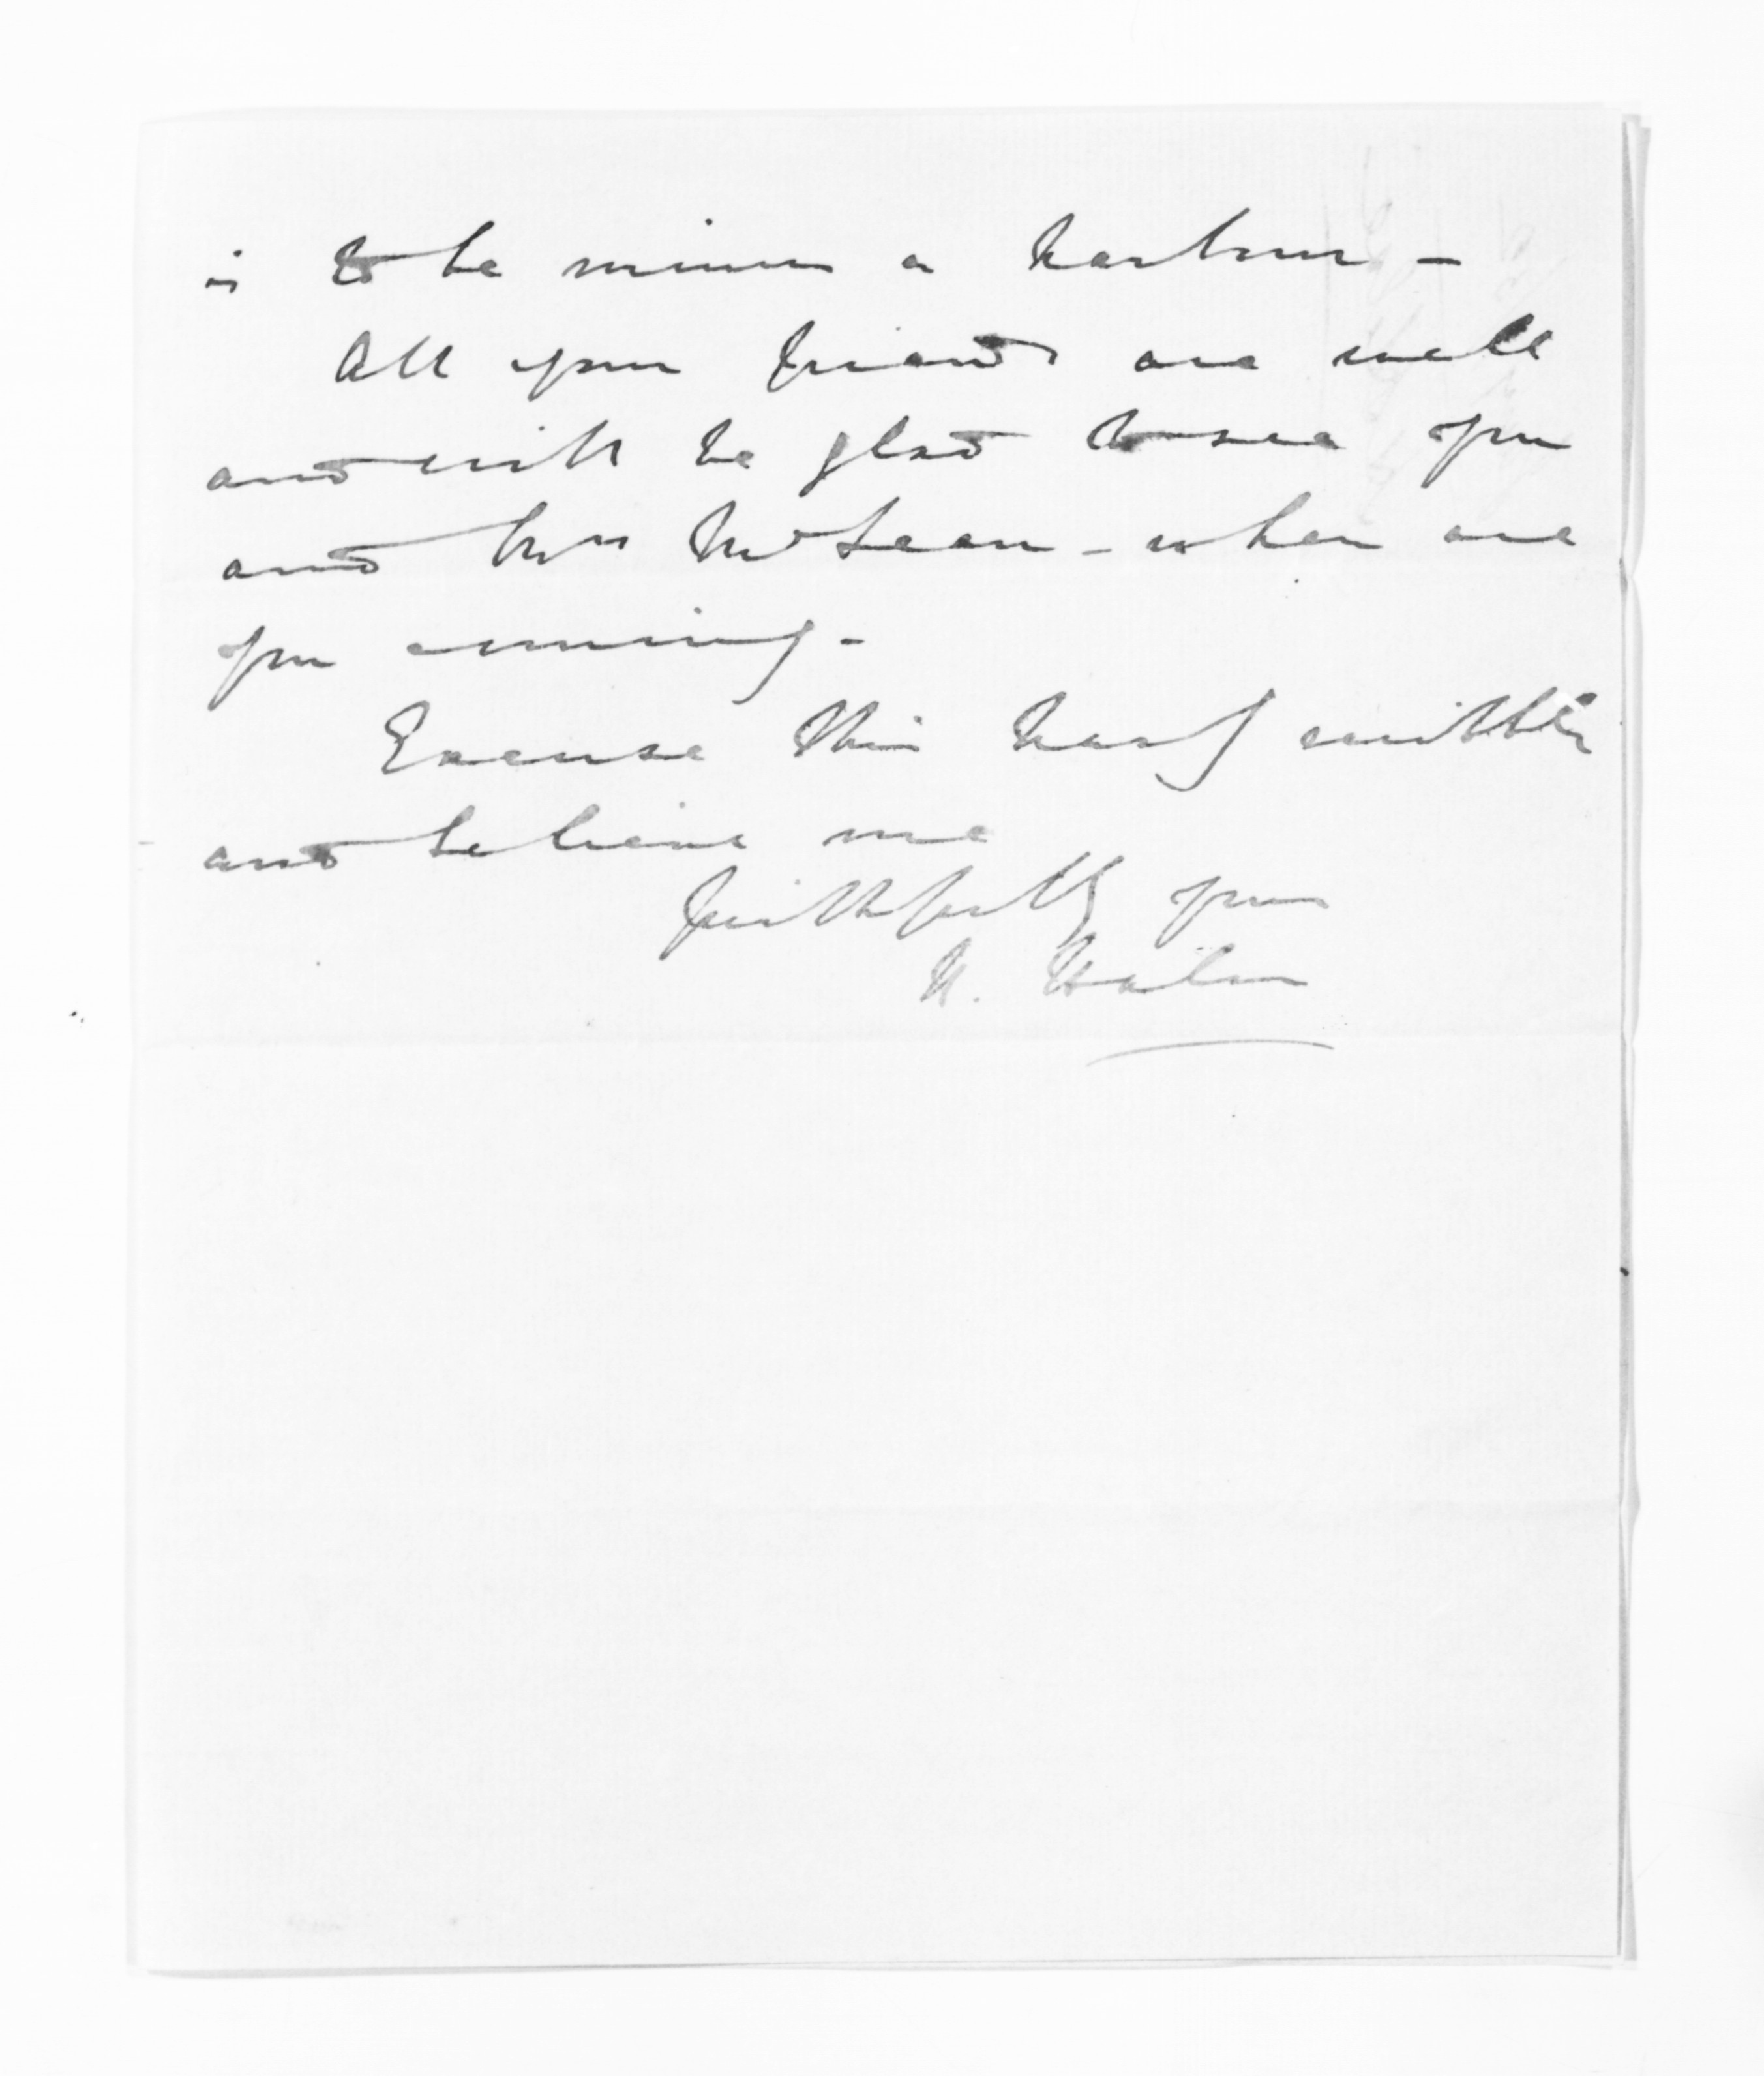 is to be minus a harbour -
All your friends are well
and will be glad to see you
and Mrs McLean - when are
you coming -
Excuse this
and believe me
faithfully yours